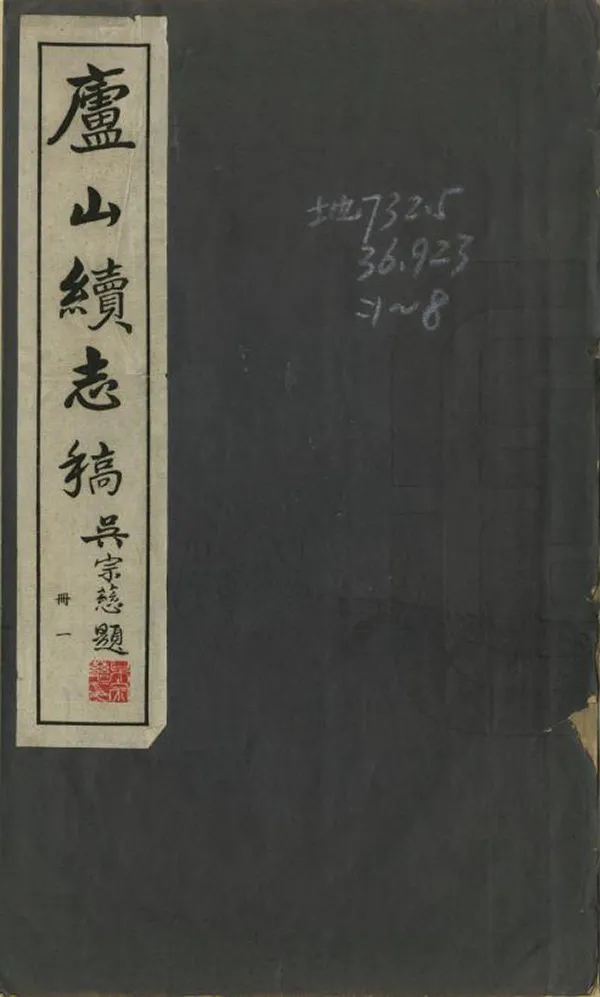 廬山續志稿
吳宗慈題
冊一
地732.5
36.923
:1~8